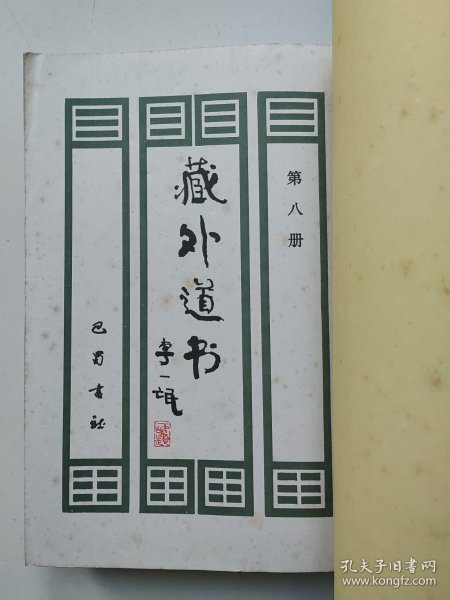 第八册
藏外道书
李一氓
巴蜀书社
孔夫子旧书网
www.kongfz.com